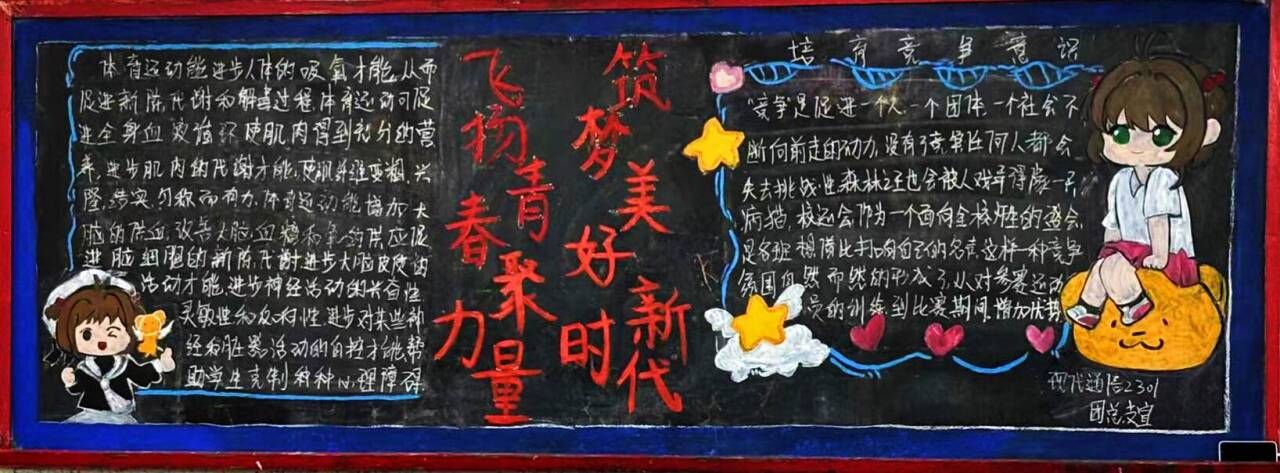 体育运动能进步人体的吸氧才能,从而
促进新陈代谢和解毒过程,体育运动可促
进全身血液循环使肌肉得到充分的营
养,进步肌肉的代谢才能,使肌纤维变粗,兴
隆,结实,匀称而有力,体育运动能增加大
脑的供血,改善大脑血糖和氧的供应促
进脑细胞的新陈代谢进步大脑皮质的
活动才能,进步神经活动的兴奋性
灵敏性和反响性,进步对某些神
经和脏器活动的自控才能,帮
助学生克制种种心理障碍
飞扬青春聚力量
筑梦美好新时代
培育竞争意识
"竞争"是促进一个人一个团体一个社会不
断向前走的动力,没有了竞争任何人都会
失去挑战性森林之王也会被人戏弄得像一只
病猫,校运会作为一个面向全校性的盛会,
是各班想借此打响自己的名声,这样一种竞争
氛围自然而然的形成了,从对参赛运动
员的训练到比赛期间,增加优势
现代通信2301
团总支宣